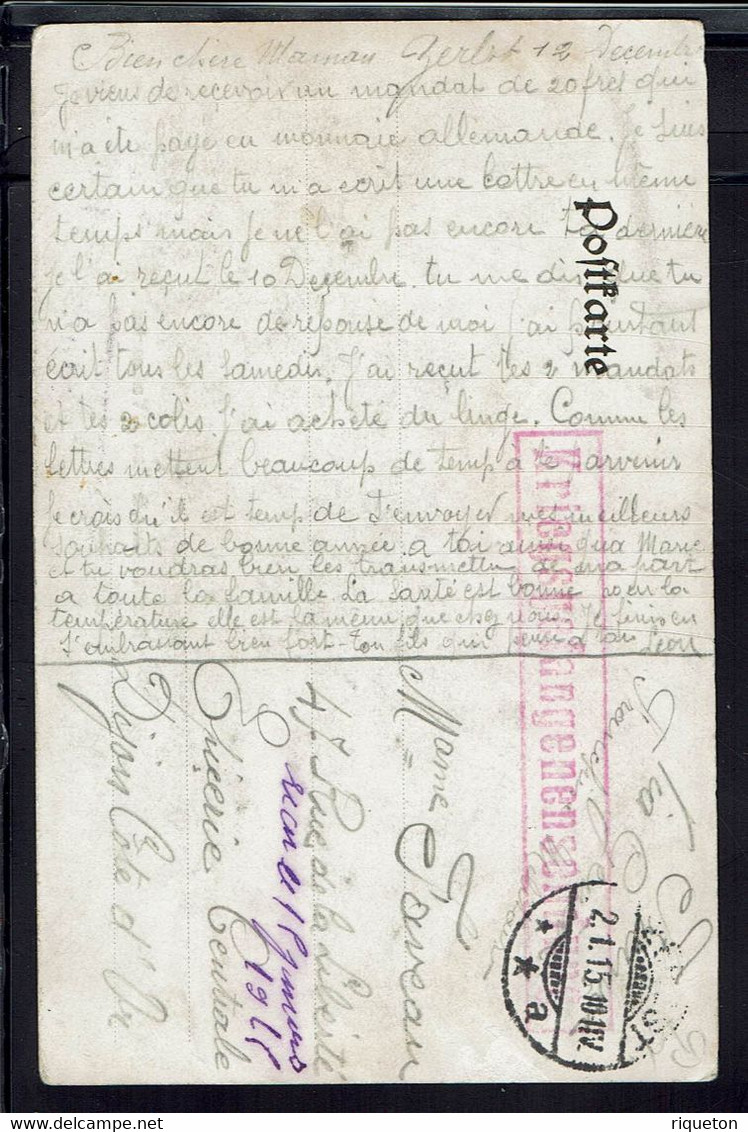 Bien chère Maman Zerbst 12 Decembre
Je viens de recevoir un mandat de 20 frcs qui
m'a été payé en monnaie allemande. Je suis
certain que tu m'a ecrit une lettre en même
temps mais je ne l'ai pas encore ta dernière
je l'ai reçut le 10 Decembre tu me dis que tu
n'a pas encore de réponse de moi j'ai pourtant
écrit tous les samedis. J'ai reçut tes 2 mandats
et tes 2 colis j'ai acheté du linge. Comme les
lettres mettent beaucoup de temp a te parvenir
je crois qu'il est temp de t'envoyer mes meilleurs
souhaits de bonne année a toi ainsi qua Marie
et tu voudras bien les transmettre de ma part
a toute la famille La Santé est bonne pour la
température elle est la même que chez nous. Je finis en
t'embrassant bien fort - ton fils qui pense a toi Léon
Postkarte
Kriegsgefangenensendung
Mame Faveau
47 Rue de la Liberté
Epicerie Centrale
Dijon Côte d'Or
2.1.15.10-11V.
* * a
riqueton